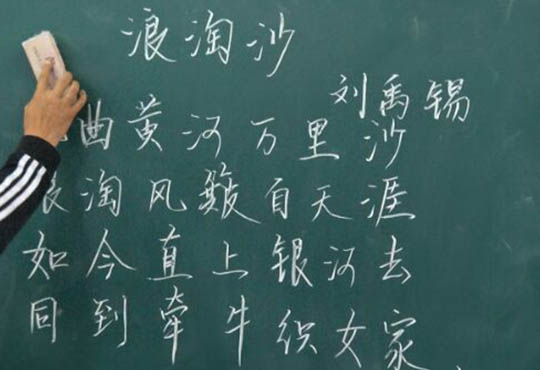 浪淘沙
刘禹锡
曲黄河万里沙
浪淘风自天涯
如今直上银河去
同到牵牛织女家.